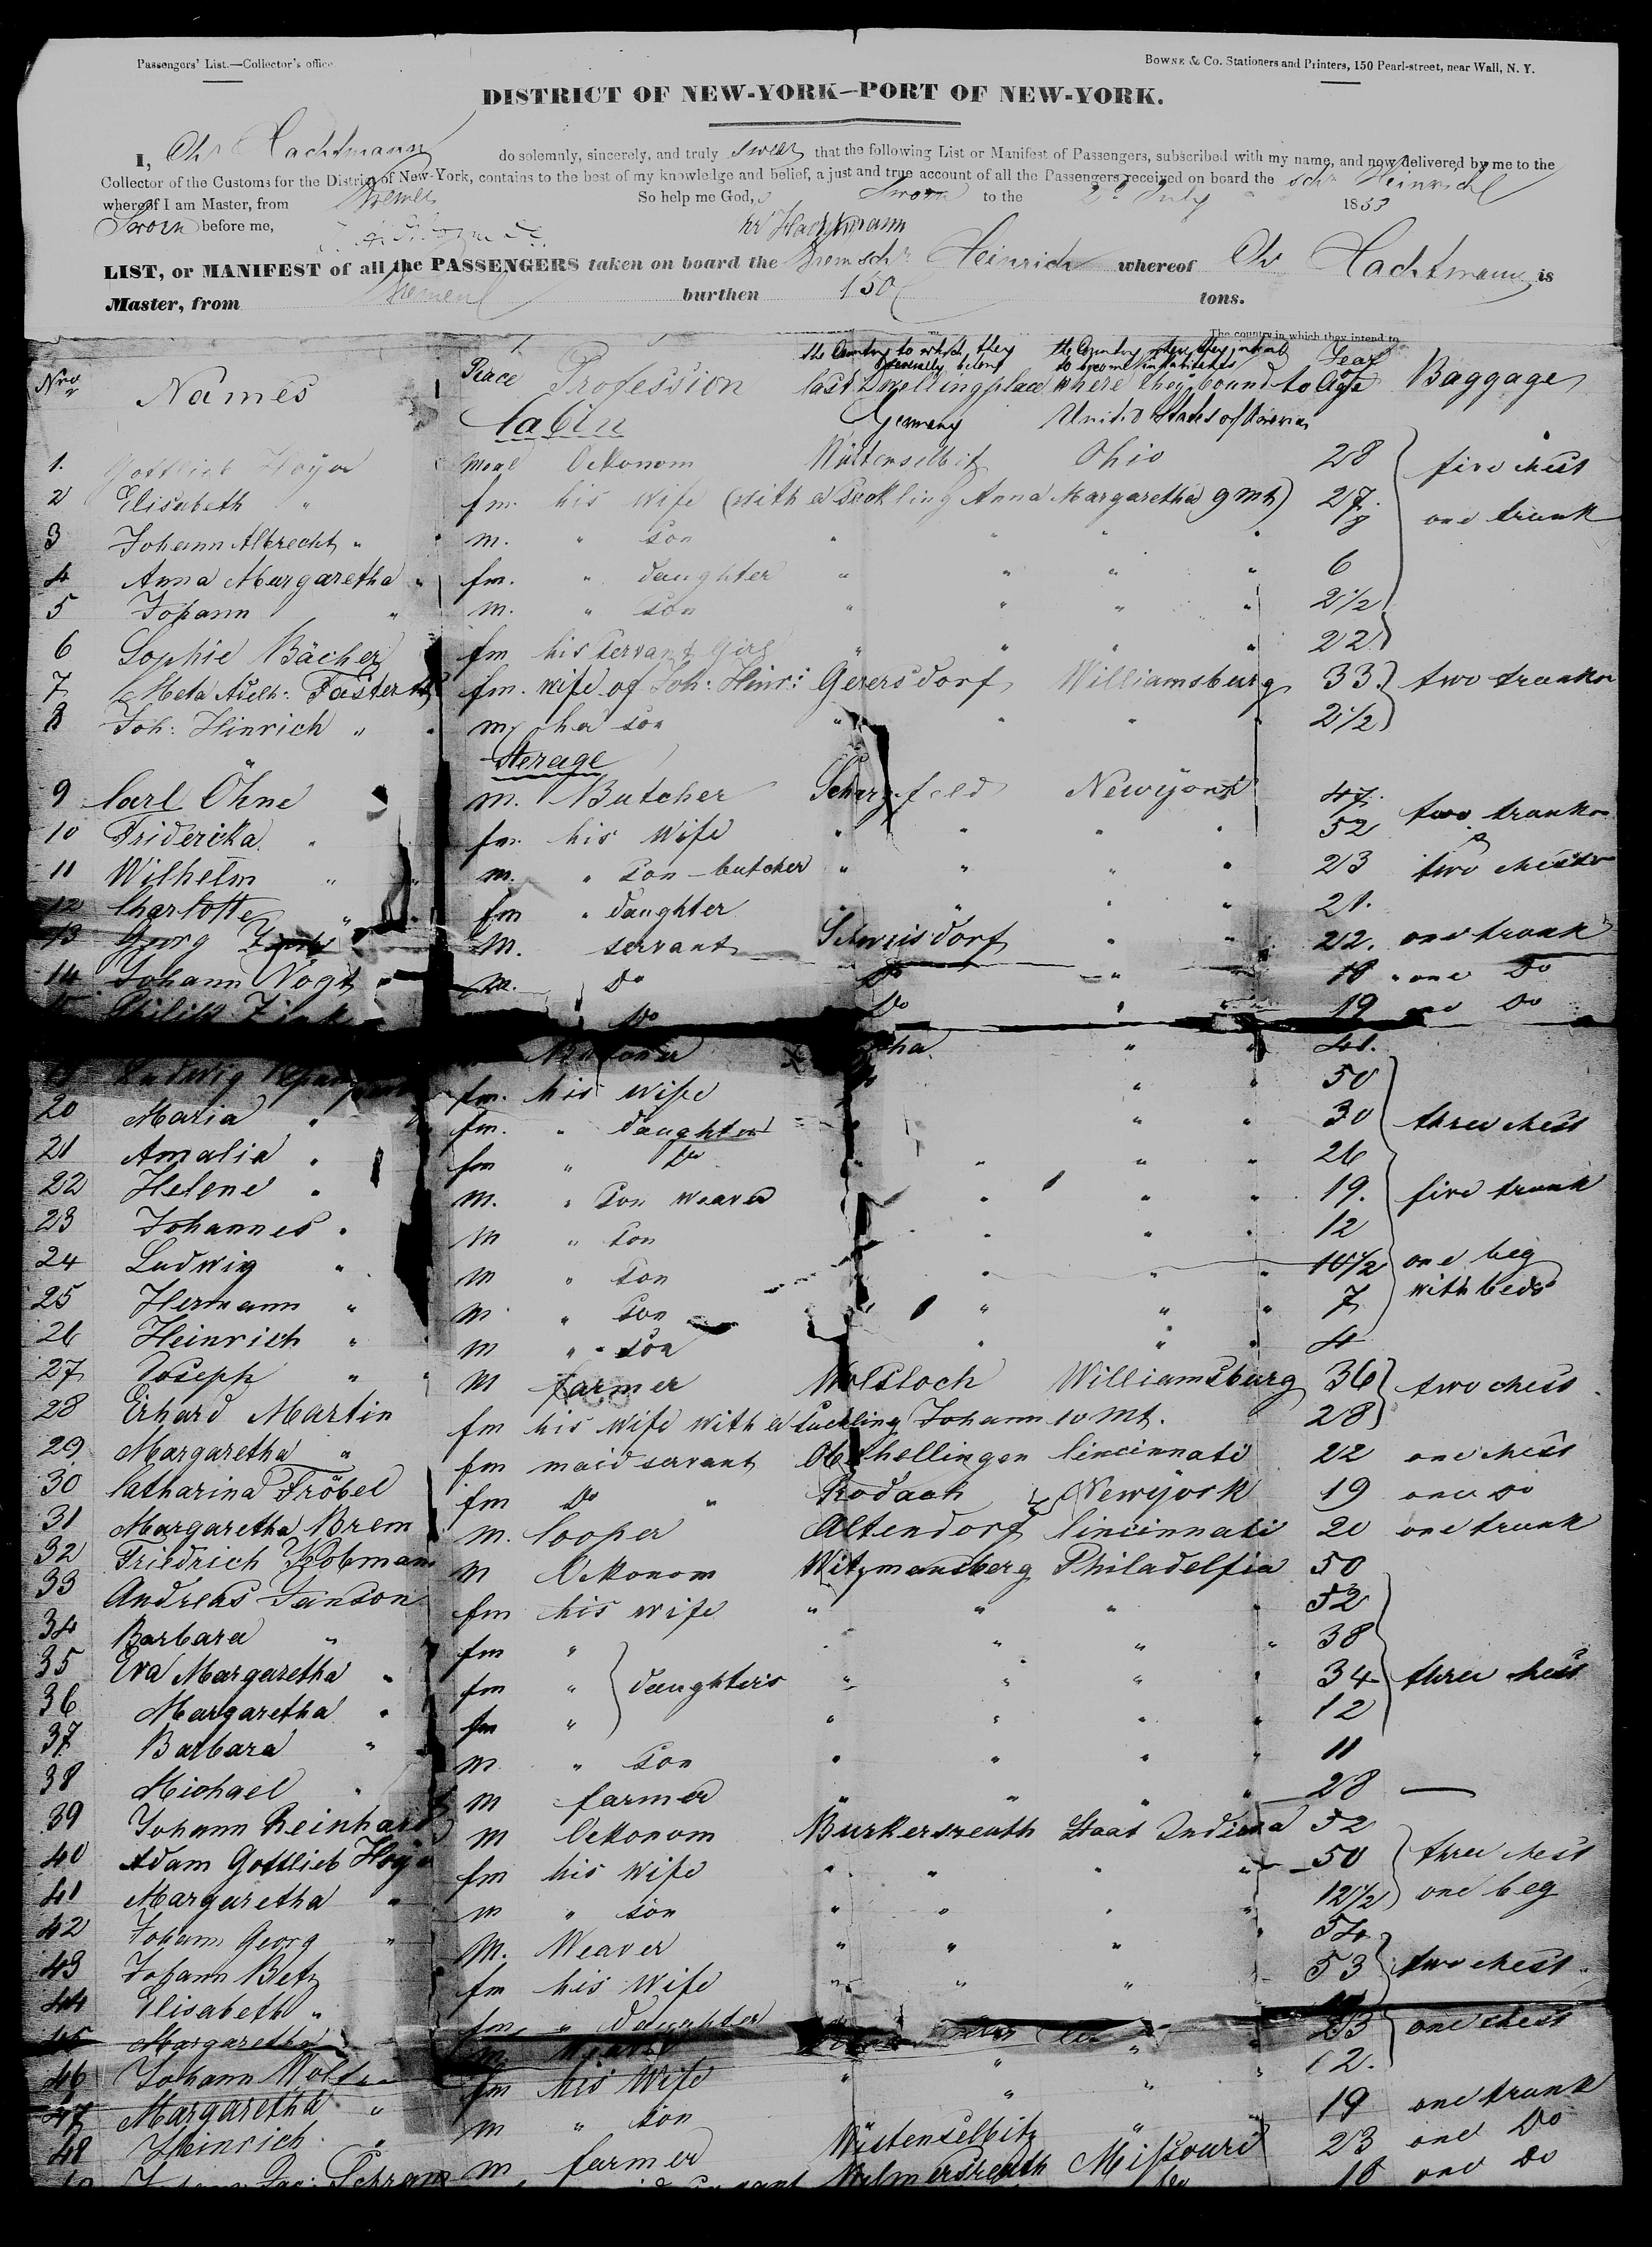 Passengers' List.—Collector's office
BOWNE & Co. Stationers and Printers, 150 Pearl-street, near Wall, N. Y.
DISTRICT OF NEW-YORK—PORT OF NEW-YORK.
I, Chr Hachtmann do solemnly, sincerely, and truly swear that the following List or Manifest of Passengers, subscribed with my name, and now delivered by me to the
Collector of the Customs for the District of New-York, contains to the best of my knowledge and belief, a just and true account of all the Passengers received on board the schr Heinrich
whereof I am Master, from Bremen So help me God, Sworn to the 2d July 1853
Sworn before me, Chr Hachtmann
LIST, or MANIFEST of all the PASSENGERS taken on board the Brem schr Heinrich whereof Chr Hachtmann is
Master, from Bremen burthen 150 tons.
The country in which they intend to
the Country to which they severally belong the Country where they intend to become inhabitants
Nro Names Profession last Dwellingplace where they bound to Age Baggage
Cabin Germany United States of America
1. Gottlieb Höyer Oekonom Wüstenselbitz Ohio 28 five chest
2 Elisabeth " fm. his wife (with a suckling Anna Margaretha 9 mt) 27. one trunk
3 Johann Albrecht " m. " son " " " " 8
4 Anna Margaretha " fm. " daughter " " " " 6
5 Johann " m. " son " " " " 2 1/2
6 Sophie Bächer fm his servant girl " " " " 22
7 Meta Adelh: fm. wife of Joh: Hinr: Geversdorf Williamsburg 33 two trunk
8 Joh: Hinrich " m. her son " " " " 2 1/2
Sterage
9 Carl Öhne m. Butcher Newyork 47. two trunk
10 Fridericka " fm. his wife " " " " 52
11 Wilhelm " " m. " son - butcher " " " " 23 two chest
12 Charlotte " fm " daughter " " " " 21.
13 Georg m. servant " " 22. one trunk
14 Johann Vogt m. Do Do " " 18 one Do
15 Philipp Zink Do Do " " 19 one Do
19 Ludwig " " 41.
20 Maria " fm. his wife " " 50
21 Amalia " fm. " daughter " " " 30 three chest
22 Helene " fm " Do " " " " 26
23 Johannes " m. " son weaver " " " 19. five trunk
24 Ludwig " m " son " " " 12
25 Hermann " m " son " " " 10 1/2 one beg
26 Heinrich " m " son " " " 7 with beds
27 Joseph " m " son " " " 4
28 Erhard Martin m farmer Wolsloch Williamsburg 36 two chest
29. Margaretha " fm his wife with a suckling Johann 10 mt. 28
30 Catharina Fröbel fm maid servant Cincinnati 22 one chest
31 Margaretha Brem fm Do " Rodach Newyork 19 one Do
32 Friedrich m. Cooper Altendorf Cincinnati 20 one trunk
33 Andreas Janson m Oekonom Witzmansberg Philadelfia 50
34 Barbara " fm his wife " " " " 52
35 Eva Margaretha " fm " " " " " 38
36 Margaretha " fm " daughters " " " " 34 three chest
37 Barbara " fm " " " " " 12
38 Michael " m " son " " " " 11
39 Johann Reinhard m farmer " " " " 28 —
40 Adam Gottlieb Höyer m Oekonom Burkersreuth Staat Indiana 52
41 Margaretha " fm his wife " " " " 50 three chest
42 Johann Georg " m " son " " " " 12 1/2 one beg
43 Johann Betz m. Weaver " " " " 54
44 Elisabeth " fm his wife " " " 53 two chest
45 Margaretha fm " daughter
46 Johann m. " " 23 one chest
47 Margaretha " fm his wife " " " " 12.
48 Heinrich " m " son " " " 19 one trunk
m farmer Wüstenselbitz Missouri 23 one Do
18 one Do